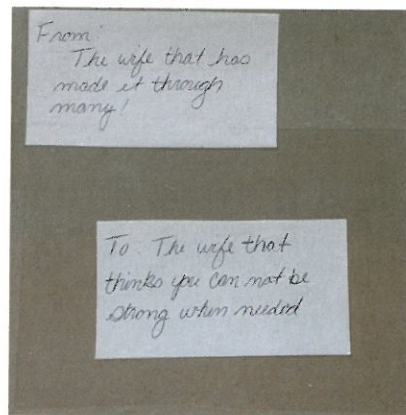 From:
The wife that has
made it through
many!
To: The wife that
thinks you can not be
strong when needed